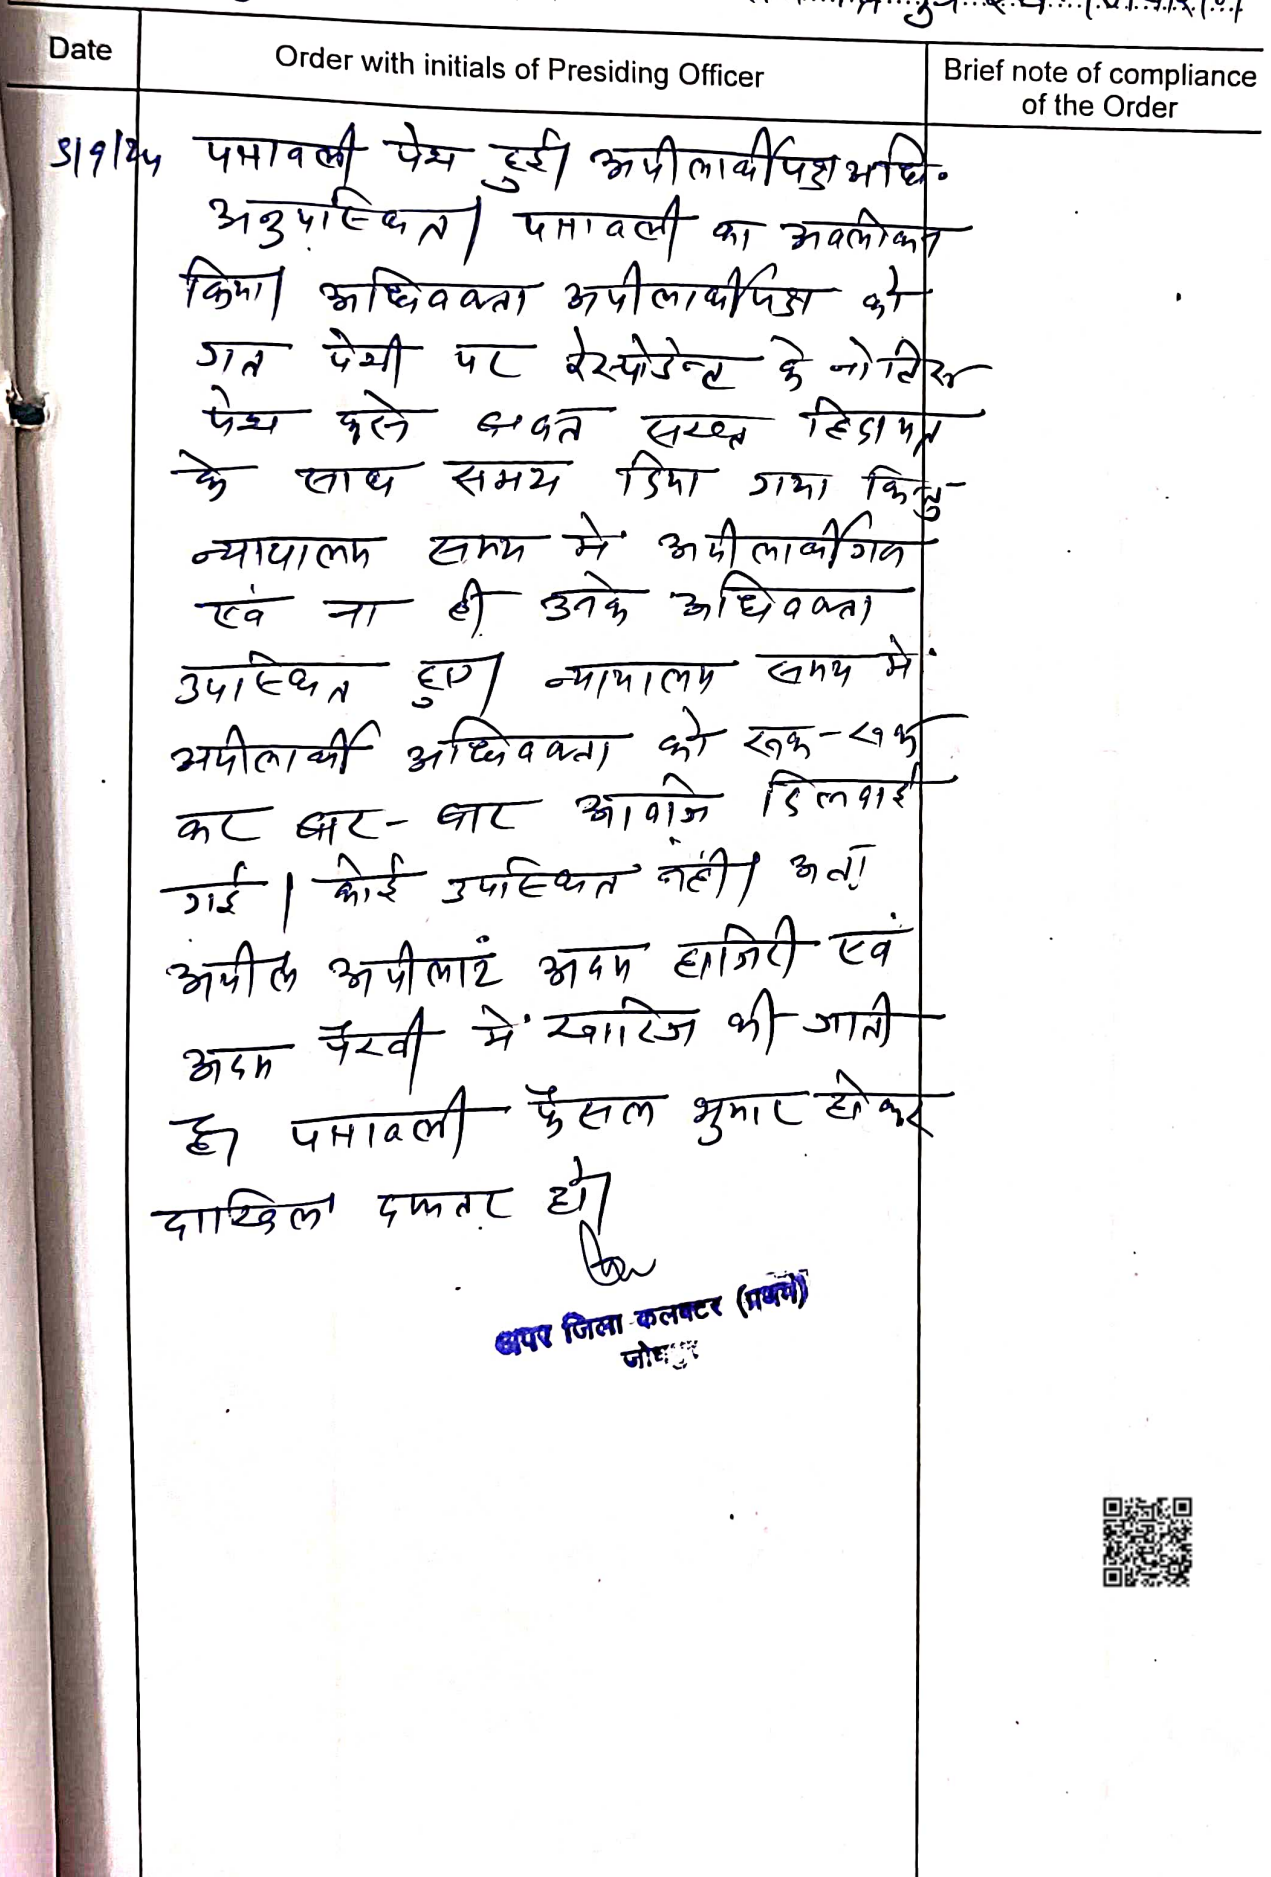 Date
Order with initials of Presiding Officer
Brief note of compliance
of the Order
5/9/24 पत्रावली पेश हुई। अपीलार्थीपक्ष अधि.
अनुपस्थित। पत्रावली का अवलोकन
किया। अधिवक्ता अपीलार्थीपक्ष को
गत पेशी पर रेस्पोडेन्ट के नोटिस
पेश करने बाबत सख्त हिदायत
के साथ समय दिया गया किन्तु
न्यायालय समय में अपीलार्थीगण
एवं ना ही उनके अधिवक्ता
उपस्थित हुए। न्यायालय समय में
अपीलार्थी अधिवक्ता को रूक-रूक
कर बार-बार आवाजे दिलवाई
गई। कोई उपस्थित नहीं। अतः
अपील अपीलाटं अदम हाजिरी एवं
अदम पैरवी में खारिज की जाती
है। पत्रावली फैसल शुमार होकर
दाखिल दफ्तर हो।
अपर जिला कलक्टर (प्रथम)
जोधपुर